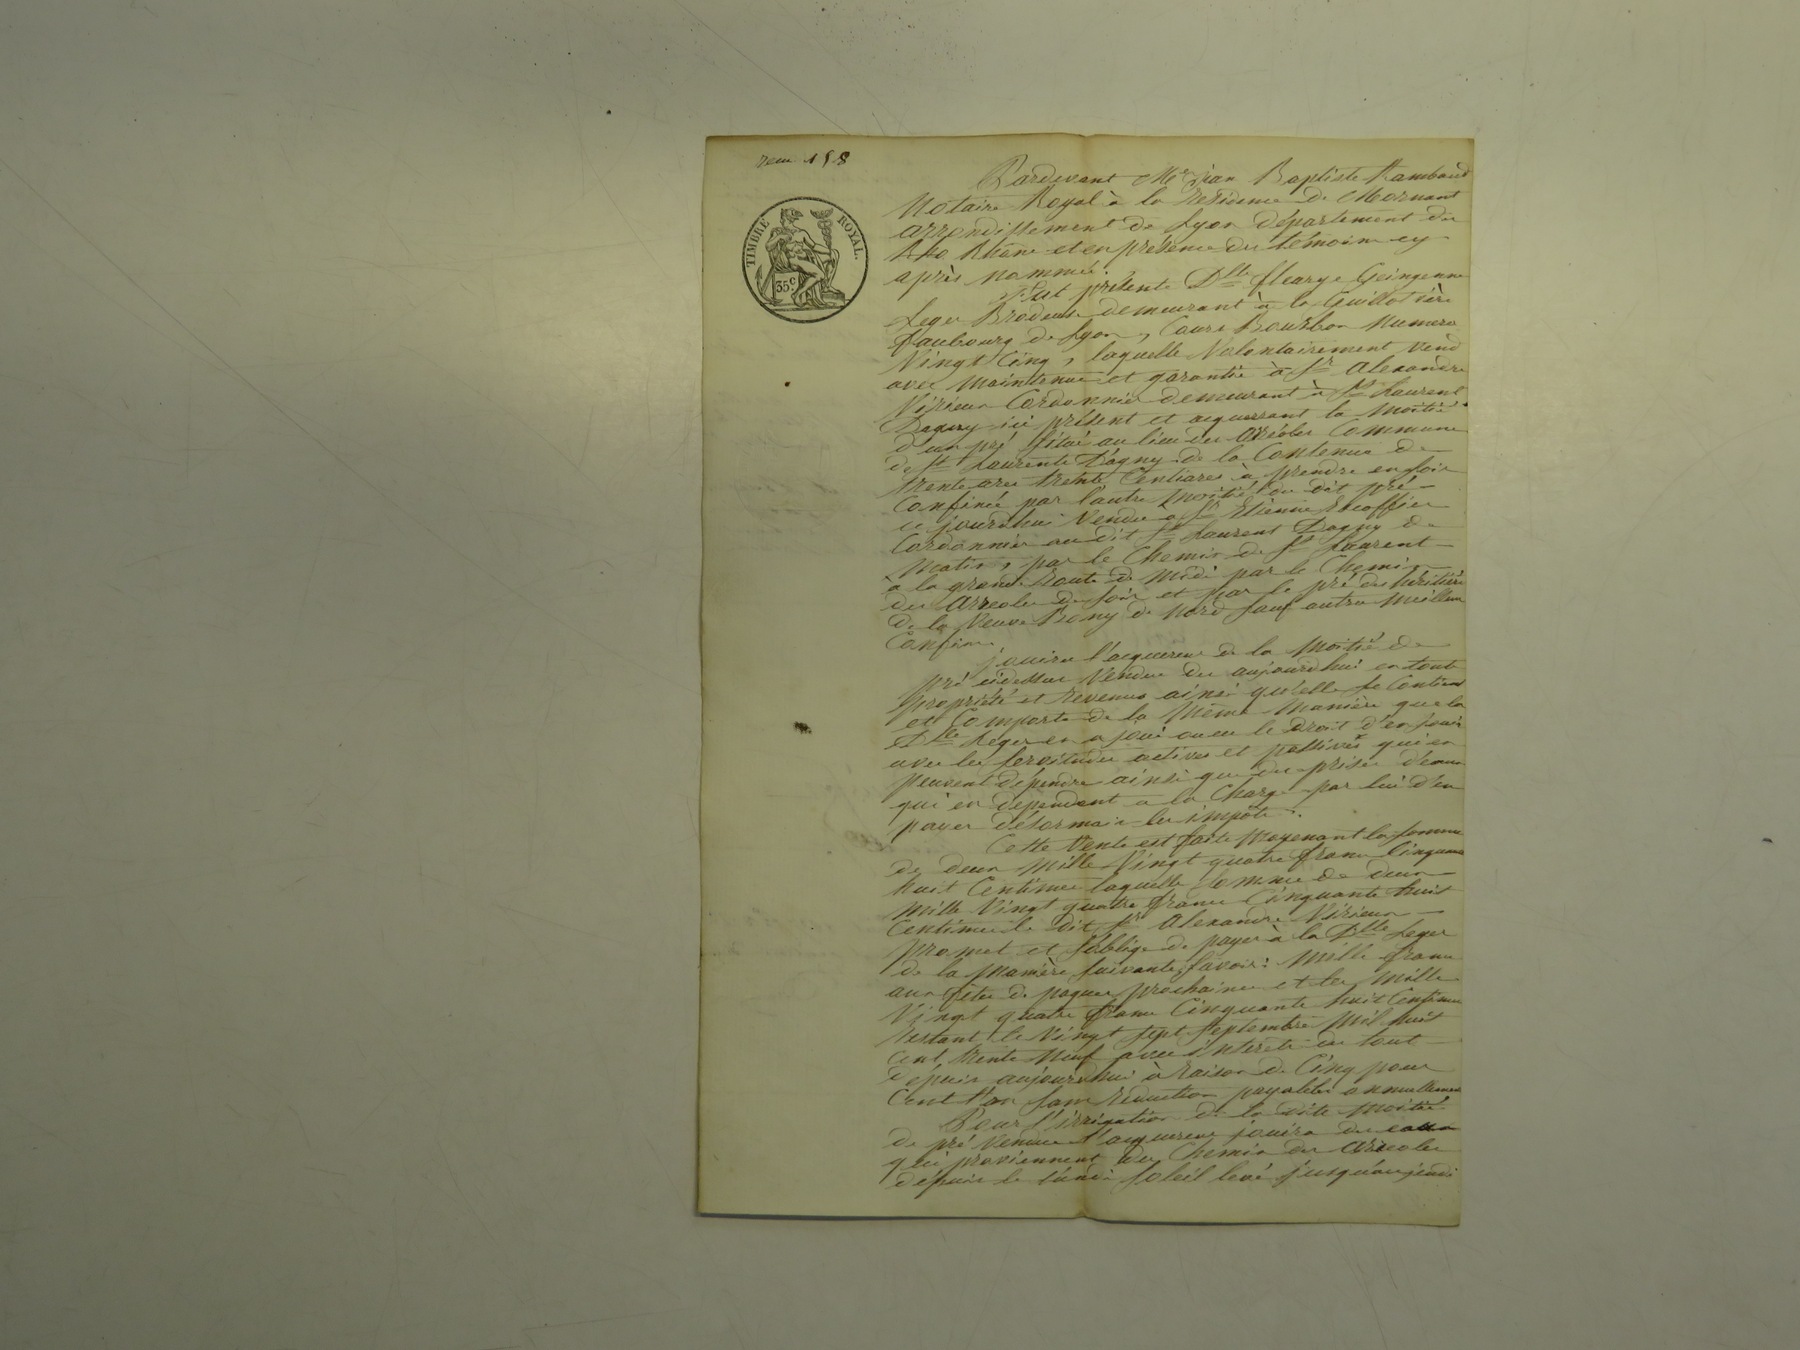 158
TIMBRE ROYAL.
35c.
Pardevant Me jean Baptiste Rambaud
Notaire Royal à la residence de Mornant
arrondissement de Lyon département du
Rhône et en présence des témoins cy
après nommés.
fut présente Dlle fleurye
Leger Brodeuse demeurant à la Guillotière
faubourg de Lyon, Cours Bourbon Numero
Vingt Cinq, laquelle Volontairement Vend
avec maintenue et garantie à Sr Alexandre
Virieux Cordonnier demeurant à St Laurent
Dagny ici présent et acquerrant la moitié
d'un pré situé au lieu des Arréoles Commune
de St Laurent Dagny de la Contenue de
trente ares trente Centiares à prendre en soir
Confinée par l'autre moitié du dit pré
ce jourdhui Vendue à Sr Etienne Escoffier
Cordonnier au dit St Laurent Dagny de
matin, par le Chemin de St Laurent
à la grande Route de midi par le Chemin
des Arreoles de soir et par le pré des héritiers
de la Veuve de nord sauf autres meilleurs
Confins.
jouira l'acquereur de la moitié de
pré cidessus Vendue des aujourdhui en toute
propriété et revenus ainsi quelle se Contient
et Comporte de la même manière que la
Dlle Leger en a joui ou eu le droit d'en jouir
avec les servitudes actives et passives qui en
peuvent dépendre ainsi que des prises d'eaux
qui en dépendent a la Charge par lui d'en
payer désormais les impôts.
Cette Vente est faite moyenant la somme
de deux mille Vingt quatre francs Cinquante
huit Centimes laquelle somme de deux
mille Vingt quatre francs Cinquante huit
Centimes le dit Sr Alexandre Virieux
promet et soblige de payer à la Dlle Leger
de la manière suivante, savoir: mille francs
aux fêtes de paques prochaines et les mille
Vingt quatre francs Cinquante huit Centimes
restant le Vingt sept septembre mil huit
Cent trente Neuf avec intérêts du tout
depuis aujourdhui à raison de Cinq pour
Cent l'an sans réduction payables annuellement
Pour l'irrigation de la dite moitié
de pré Vendue l'acquereur jouira des eaux
qui proviennent du Chemin des Arreoles
depuis le lundi soleil levé jusqu'au jeudi